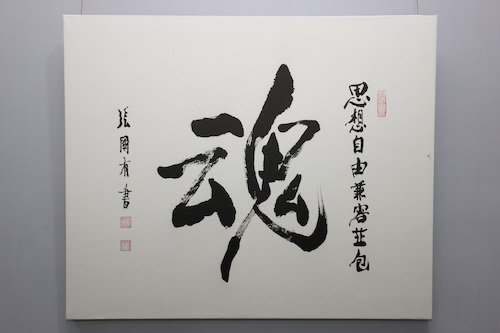 思想自由兼容並包
魂
張國有書